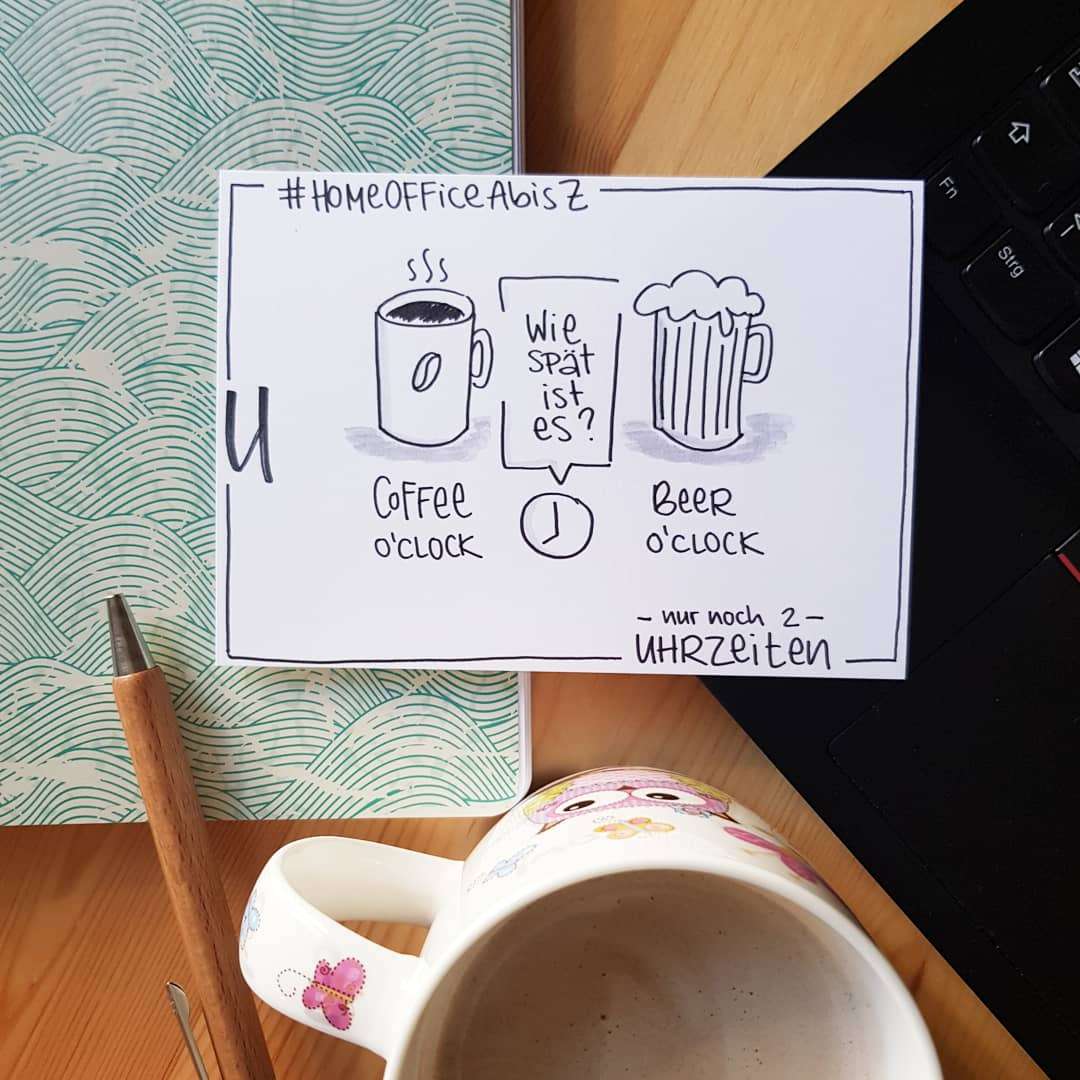 #HOMEOFFICEAbisZ
Wie
spät
ist
es?
U
COFFEE
O'CLOCK
BEER
O'CLOCK
- nur noch 2 -
UHRZEITEN
Fn
Strg